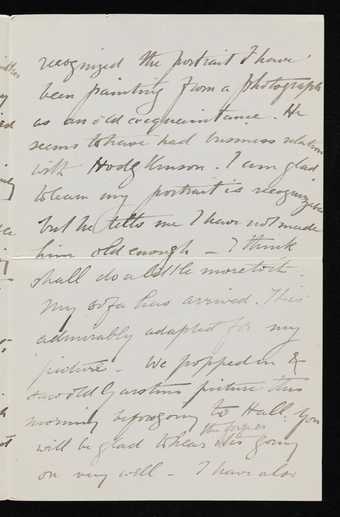 recognized the portrait I have
been painting from a photograph
as an old acquaintance. He
seems to have had business relations
with Hodgkinson. I am glad
to learn my portrait is recognizable
but he tells me I have not made
him old enough — I think
shall do a little more to it.
My sofa has arrived. It is
admirably adapted for my
picture — We popped in &
saw old Garstins picture this
morning before going to Hall. You
will be glad to hear it is going
on very well — I have also